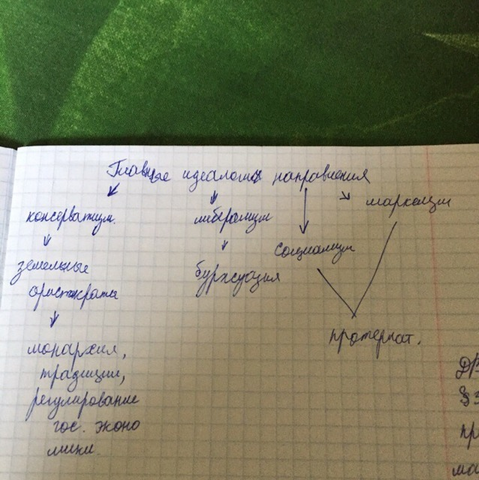 Главные идеалоги направления
консерватизм.
либерализм
марксизм
социализм
земельные
аристократы
буржуазия
протериат.
монархия,
традиции,
регулирование
гос. эконо
мики.
§3